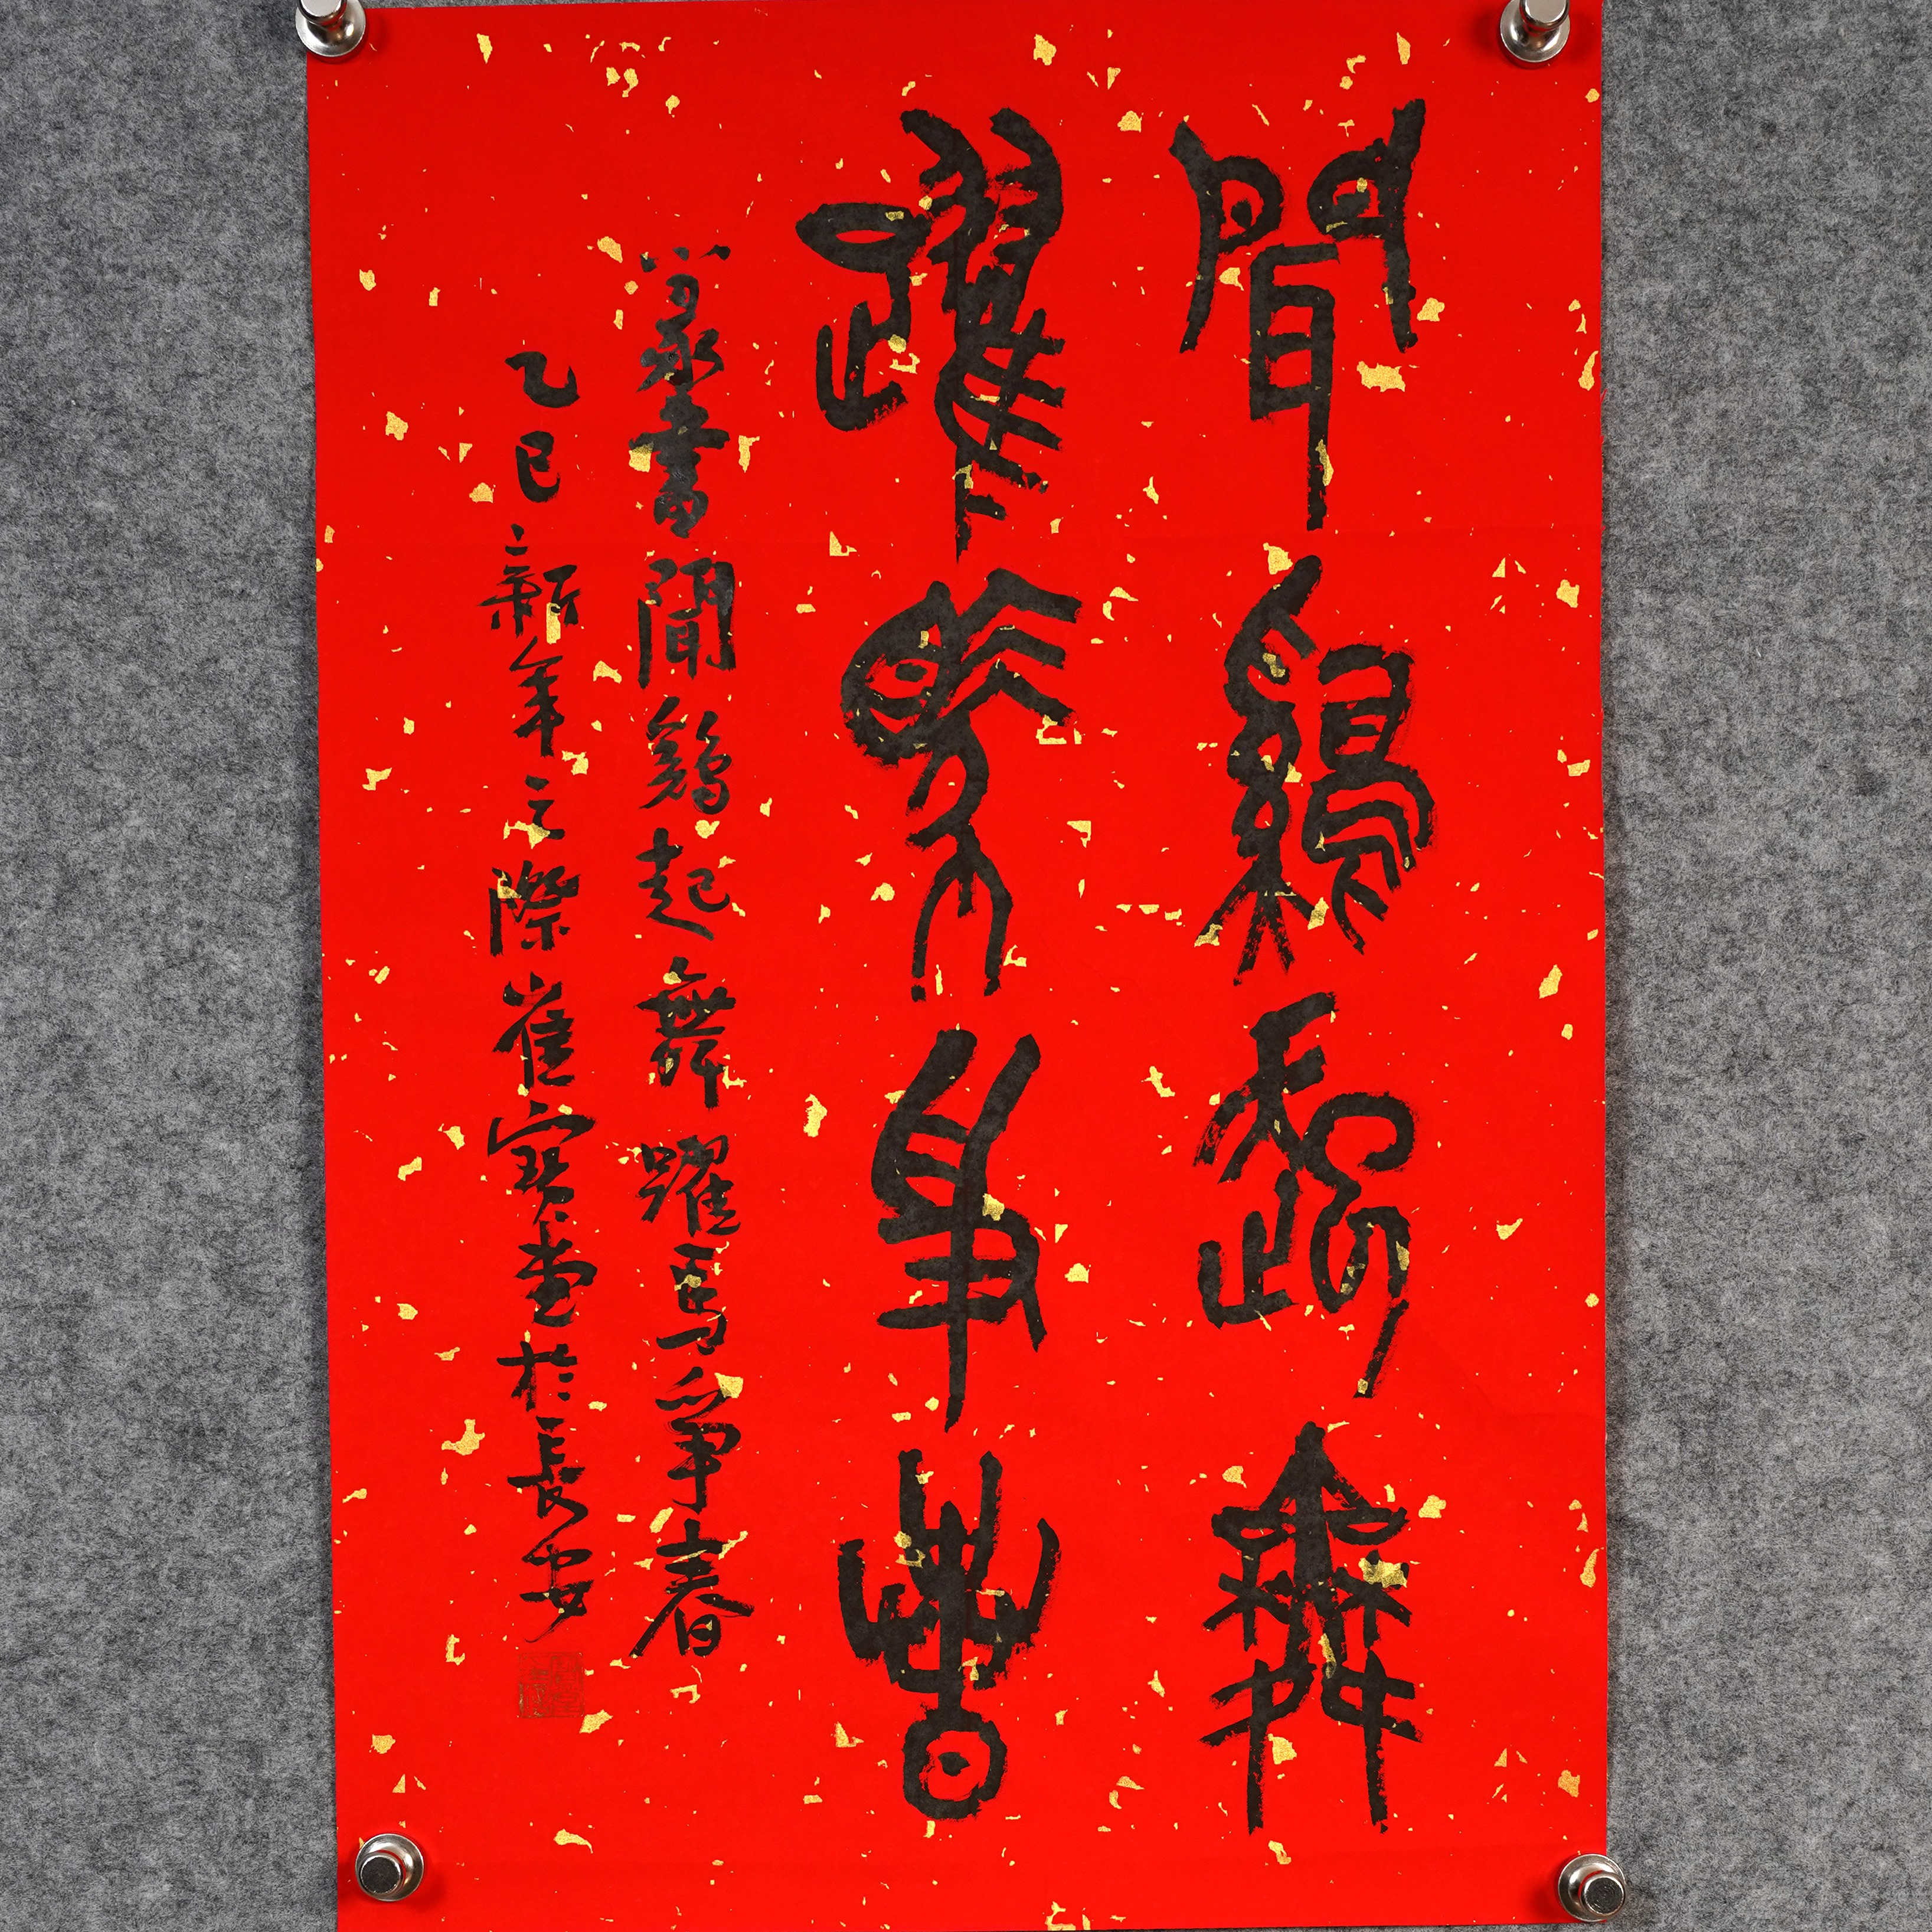 聞鷄起舞
躍馬爭春
篆書聞鷄起舞躍馬爭春
乙巳新年之際崔寶堂於長安